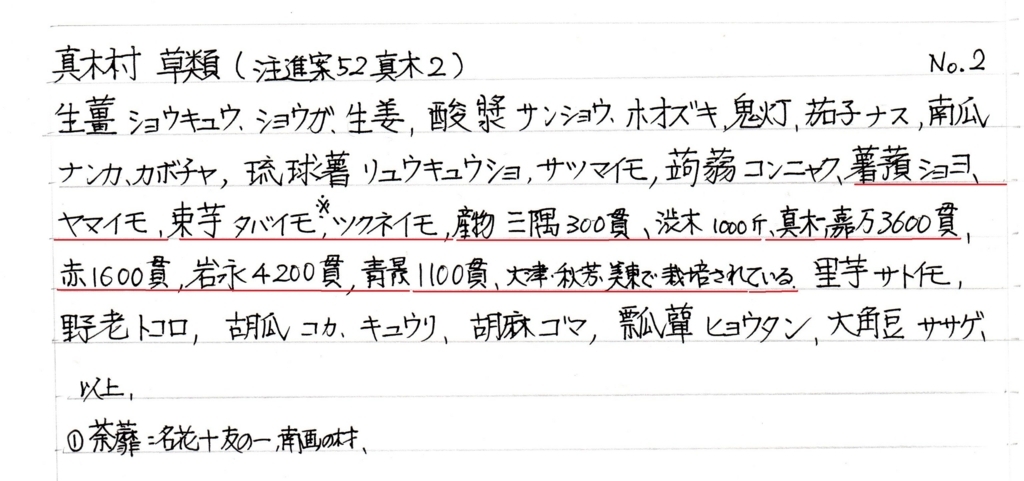 真木村 草類(注進案52真木2) No.2
生薑 ショウキュウ、ショウガ、生姜, 酸漿 サンショウ、ホオズキ,鬼灯、茄子ナス,南瓜
ナンカ、カボチャ, 琉球薯リュウキュウショ,サツマイモ,蒟蒻 コンニャク、薯蕷 ショヨ、
ヤマイモ,束芋 タバイモ※,ツクネイモ,産物 三隅300貫、渋木1000斤、真木、嘉万3600貫,
赤1600貫,岩永4200貫,青景1100貫、大津・秋芳、美東で栽培されている. 里芋 サトイモ,
野老トコロ, 胡瓜 コカ、キュウリ、胡麻ゴマ, 瓢箪 ヒョウタン、大角豆 ササゲ、
以上,
①荼蘼=名花十友の一,南画の材、